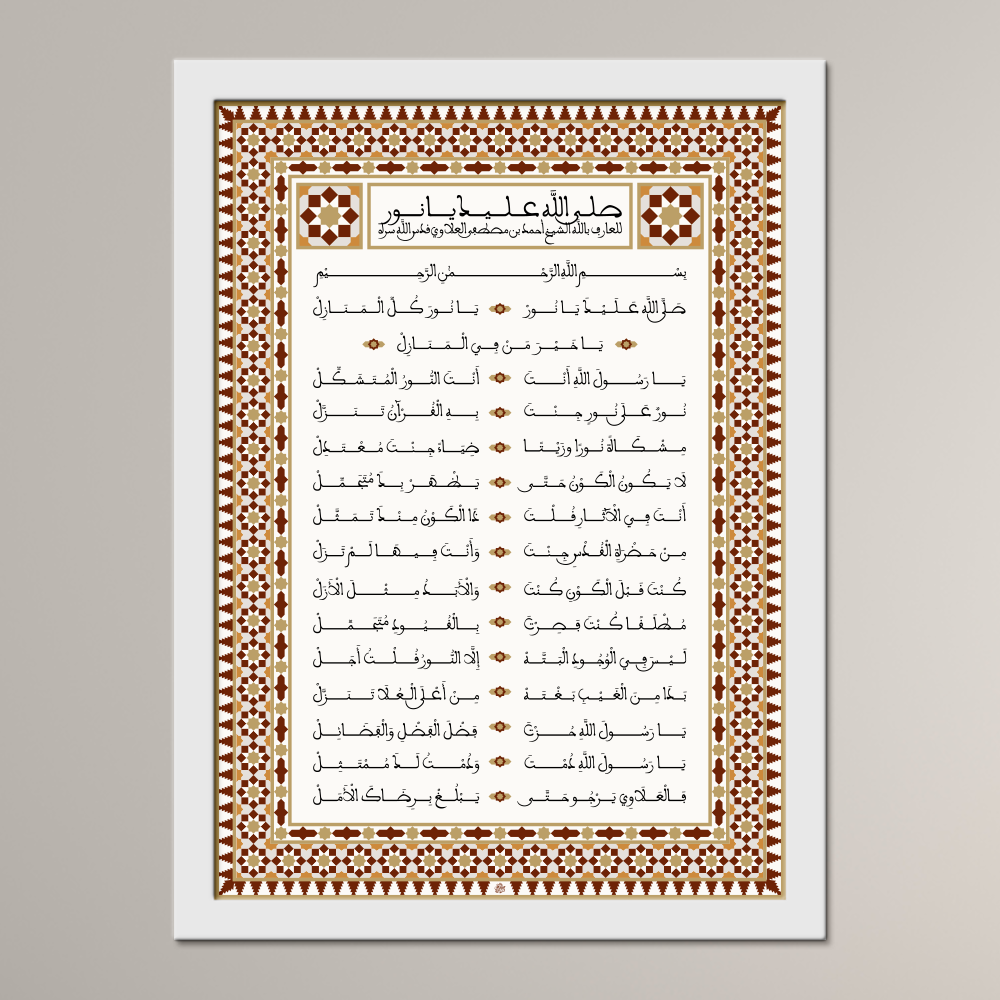 صلى الله عليك يا نور
للعارف بالله الشيخ أحمد بن مصطفى العلاوي قدس الله سره
بِسْمِ اللَّهِ الرَّحْمَٰنِ الرَّحِيمِ
صَلَّى اللَّهُ عَلَيْكَ يَا نُورْ يَا نُورَ كُلِّ الْمَنَازِلْ
يَا خَيْرَ مَنْ فِي الْمَنَازِلْ
يَا رَسُولَ اللَّهِ أَنْتَ أَنْتَ النُّورُ الْمُتَشَكِّلْ
نُورٌ عَلَى نُورٍ جِئْتَ بِهِ الْقُرْآنُ تَنَزَّلْ
مِشْكَاةً نُورًا وَزَيْتًا ضِيَاءً جِئْتَ مُعْتَدِلْ
لَا يَكُونُ الْكَوْنُ حَتَّى يَظْهَرْ بِكَ مُتَجَمِّلْ
أَنْتَ فِي الْآثَارِ قُلْتَ ذَا الْكَوْنُ مِنْكَ تَمَثَّلْ
مِنْ حَضْرَةِ الْقُدْسِ جِئْتَ وَأَنْتَ فِيهَا لَمْ تَزَلْ
كُنْتَ قَبْلَ الْكَوْنِ كُنْتَ وَالْأَبَدُ مِثْلَ الْأَزَلْ
مُطْلَقًا كُنْتَ قَصِرْتَ بِالْقُيُودِ مُتَجَمِّلْ
لَيْسَ فِي الْوُجُودِ الْبَتَّةَ إِلَّا النُّورُ قُلْتُ أَجَلْ
بَدَا مِنَ الْغَيْبِ بَغْتَةً مِنْ أَعْلَى الْعُلَا تَنَزَّلْ
يَا رَسُولَ اللَّهِ حُزْتَ فَضْلَ الْفَضْلِ وَالْفَضَائِلْ
يَا رَسُولَ اللَّهِ دُمْتَ وَدُمْتُ لَكَ مُمْتَثِلْ
فَالْعَلَاوِي يَرْجُو حَتَّى يَبْلُغْ بِرِضَاكَ الْأَمَلْ